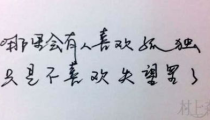 哪里会有人喜欢孤独
只是不喜欢失望罢了
村上